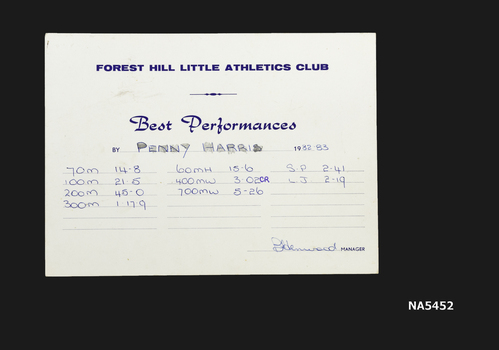 FOREST HILL LITTLE ATHLETICS CLUB
Best Performances
BY PENNY HARRIS 1982.83
70m 14.8 60mH 15.6 S.P 2-41
100m 21.5 400mw 3.02CR L.J 2-19
200m 45-0 700mw 5-26
300m 1.17.9
MANAGER
NA5452